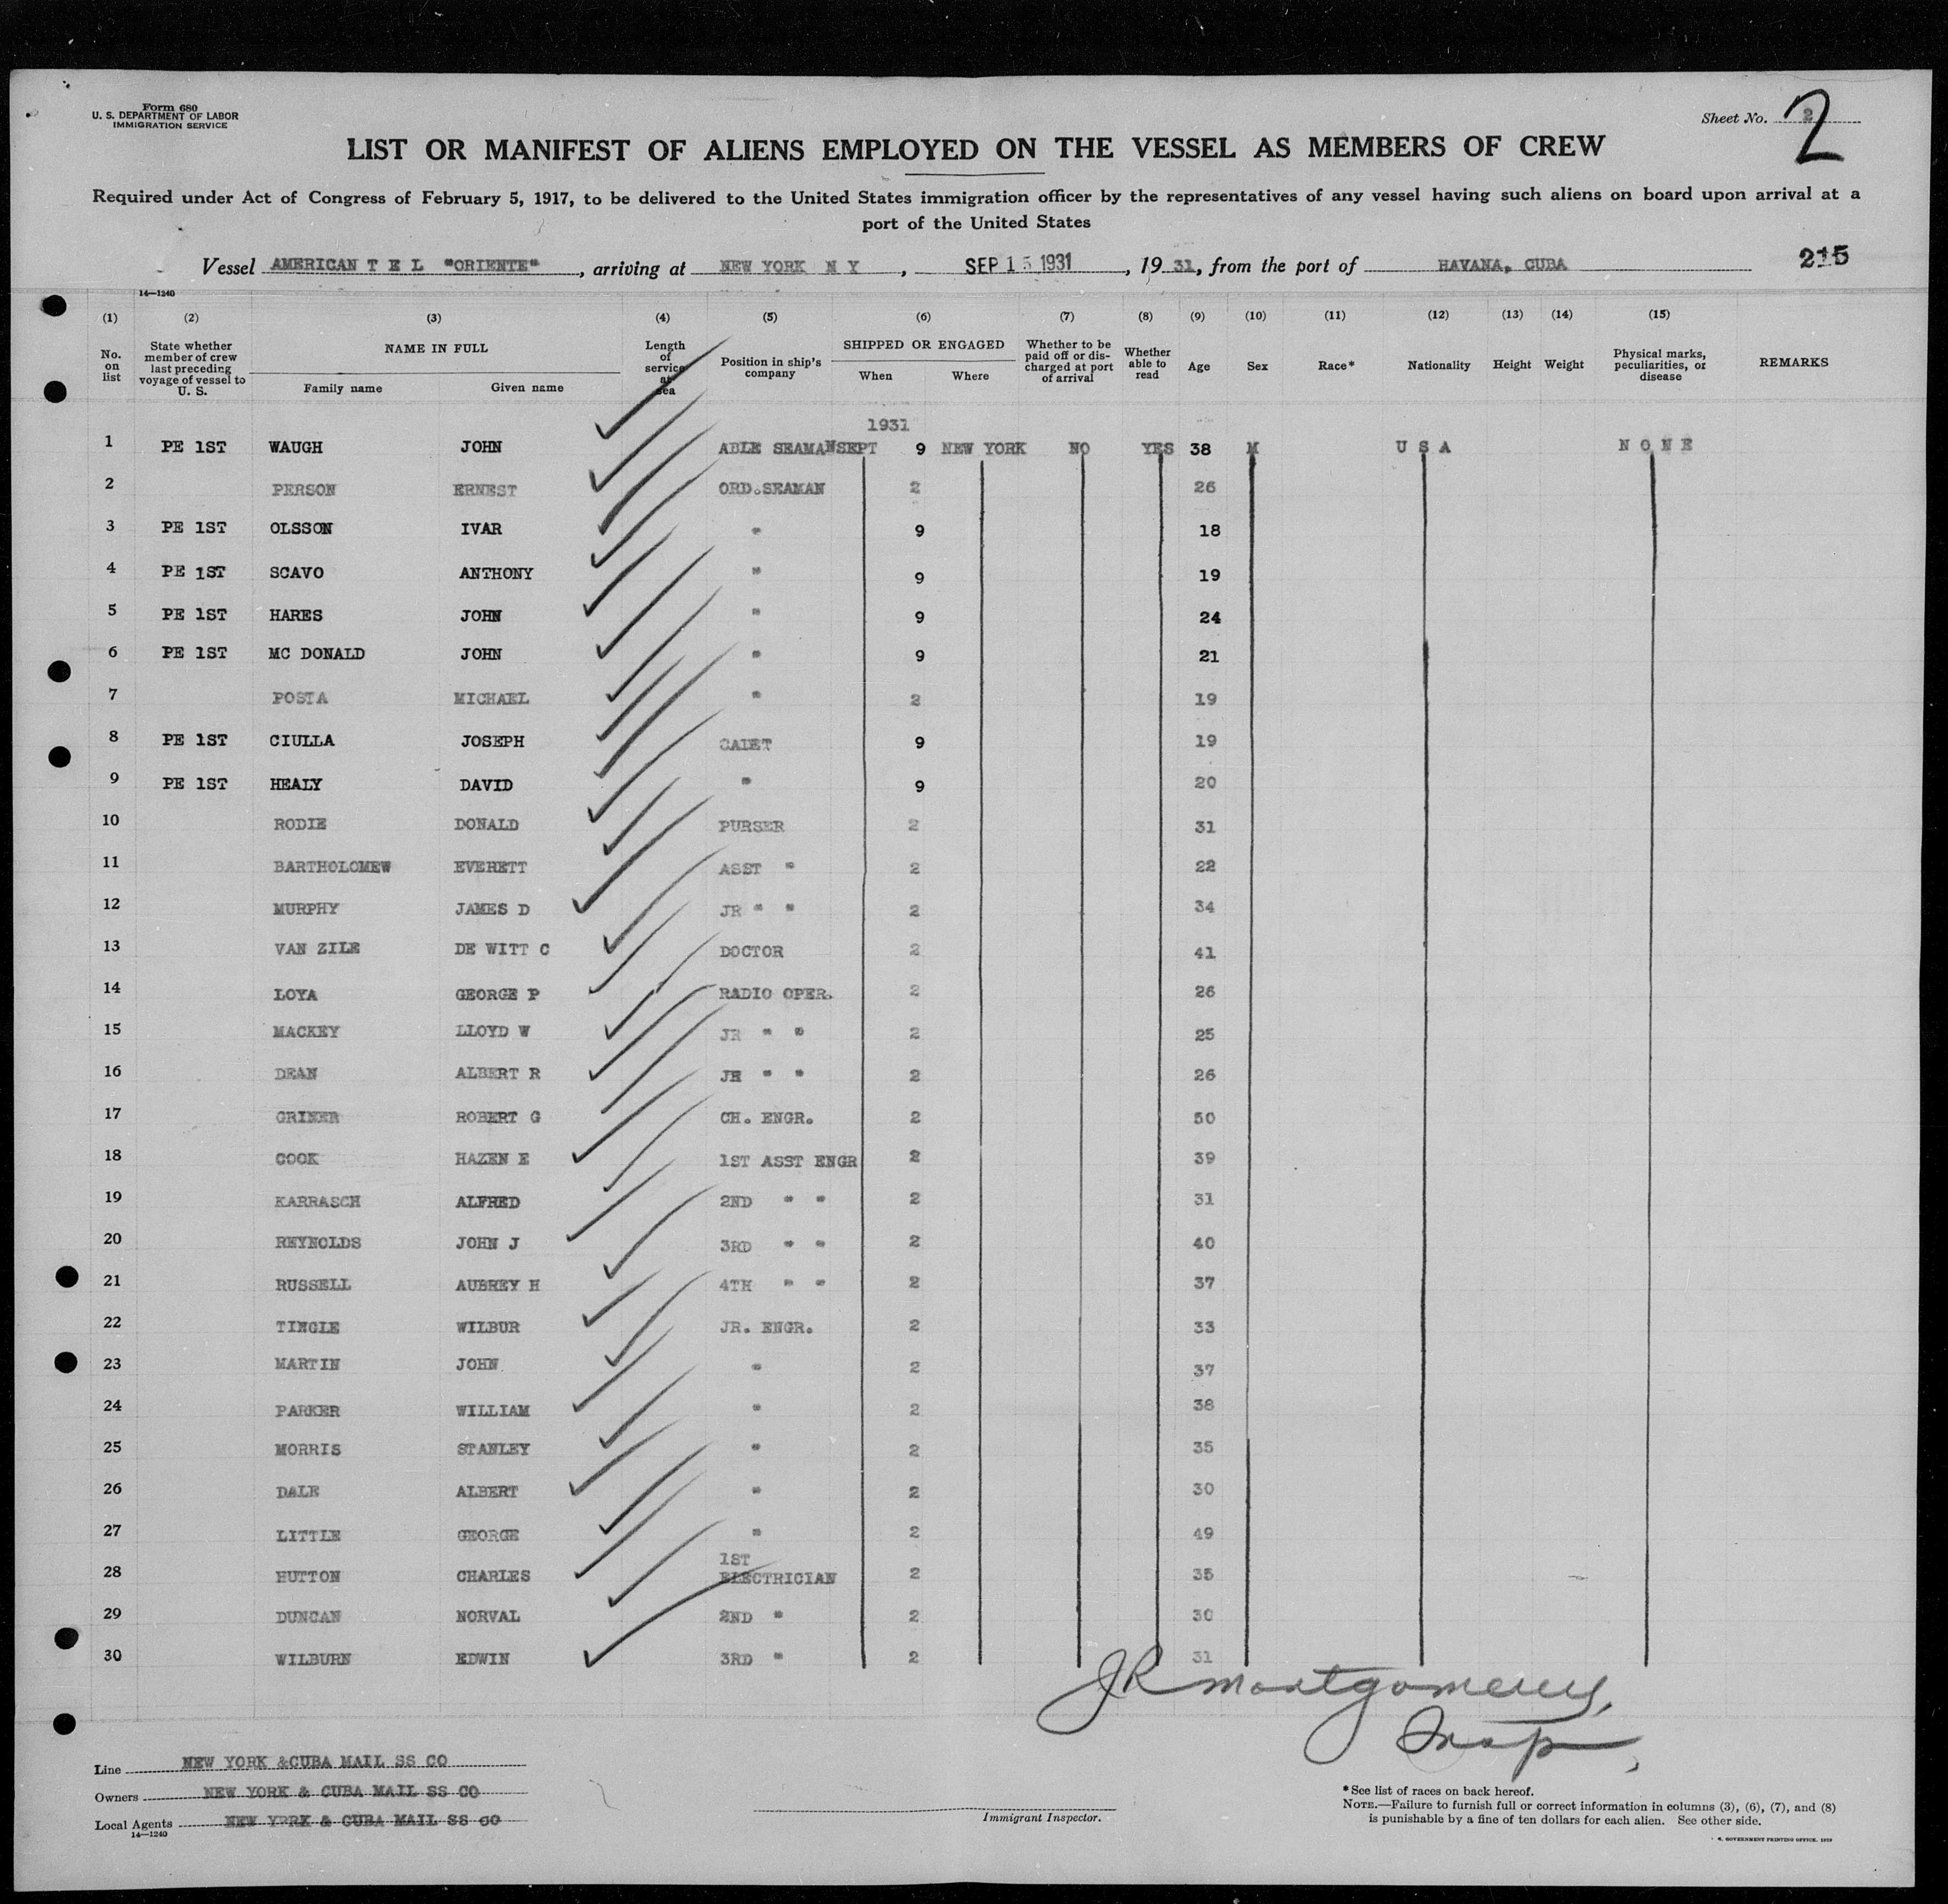 Form 680
U. S. DEPARTMENT OF LABOR
IMMIGRATION SERVICE
Sheet No. 2
2
LIST OR MANIFEST OF ALIENS EMPLOYED ON THE VESSEL AS MEMBERS OF CREW
Required under Act of Congress of February 5, 1917, to be delivered to the United States immigration officer by the representatives of any vessel having such aliens on board upon arrival at a
port of the United States
Vessel AMERICAN T E L "ORIENTE", arriving at NEW YORK N Y, SEP 15 1931, 1931, from the port of HAVANA, CUBA 215
14—1240
(1) (2) (3) (4) (5) (6) (7) (8) (9) (10) (11) (12) (13) (14) (15)
No. on list State whether member of crew last preceding voyage of vessel to U. S. NAME IN FULL Family name Given name Length of service at sea Position in ship's company SHIPPED OR ENGAGED When Where Whether to be paid off or discharged at port of arrival Whether able to read Age Sex Race* Nationality Height Weight Physical marks, peculiarities, or disease REMARKS
1931
1 PE 1ST WAUGH JOHN ABLE SEAMAN SEPT 9 NEW YORK NO YES 38 M U S A N O N E
2 PERSON ERNEST ORD.SEAMAN 2 26
3 PE 1ST OLSSON IVAR " 9 18
4 PE 1ST SCAVO ANTHONY " 9 19
5 PE 1ST HARES JOHN " 9 24
6 PE 1ST MC DONALD JOHN " 9 21
7 POSTA MICHAEL " 2 19
8 PE 1ST CIULLA JOSEPH CADET 9 19
9 PE 1ST HEALY DAVID " 9 20
10 RODIE DONALD PURSER 2 31
11 BARTHOLOMEW EVERETT ASST " 2 22
12 MURPHY JAMES D JR " " 2 34
13 VAN ZILE DE WITT C DOCTOR 2 41
14 LOYA GEORGE P RADIO OPER. 2 26
15 MACKEY LLOYD W JR " " 2 25
16 DEAN ALBERT R JR " " 2 26
17 GRINER ROBERT G CH. ENGR. 2 50
18 COOK HAZEN E 1ST ASST ENGR 2 39
19 KARRASCH ALFRED 2ND " " 2 31
20 REYNOLDS JOHN J 3RD " " 2 40
21 RUSSELL AUBREY H 4TH " " 2 37
22 TINGLE WILBUR JR. ENGR. 2 33
23 MARTIN JOHN " 2 37
24 PARKER WILLIAM " 2 38
25 MORRIS STANLEY " 2 35
26 DALE ALBERT " 2 30
27 LITTLE GEORGE " 2 49
28 HUTTON CHARLES 1ST ELECTRICIAN 2 35
29 DUNCAN NORVAL 2ND " 2 30
30 WILBURN EDWIN 3RD " 2 31
JR Montgomery,
Insp
Line NEW YORK &CUBA MAIL SS CO
Owners NEW YORK & CUBA MAIL SS CO
Local Agents NEW YPRK & CUBA MAIL SS CO
14—1240
Immigrant Inspector.
*See list of races on back hereof.
NOTE.—Failure to furnish full or correct information in columns (3), (6), (7), and (8)
is punishable by a fine of ten dollars for each alien. See other side.
GOVERNMENT PRINTING OFFICE